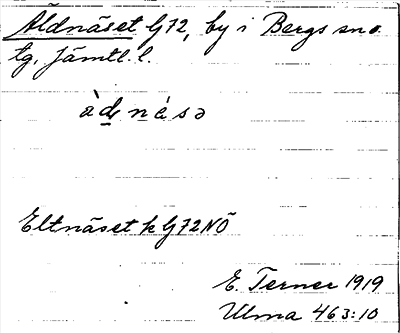 Äldnäset G72, by i Bergs sn o.
tg, Jämtl. l.
àd̲n̲ésə
Eltnäset k G72NÖ
E. Terner 1919
Ulma 463:10